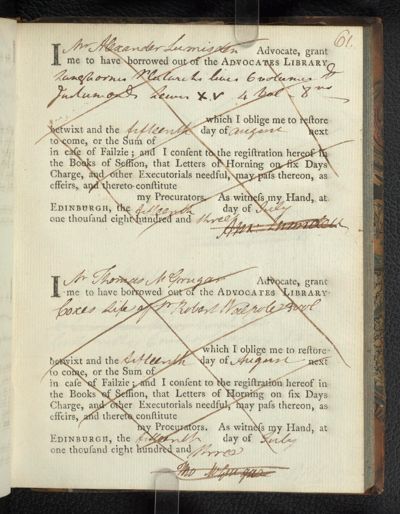 61.
I Mr Alexander Lumisden Advocate, grant
me to have borrowed out of the ADVOCATES LIBRARY
Langhornes Plutarchs lives 6 volumes
4 Vol 8vo
which I oblige me to reſtore
betwixt and the fifteenth day of August next
to come, or the Sum of
in caſe of Failzie; and I conſent to the regiſtration hereof in
the Books of Seſſion, that Letters of Horning on ſix Days
Charge, and other Executorials needful, may paſs thereon, as
effeirs, and thereto conſtitute
my Procurators. As witneſs my Hand, at
EDINBURGH, the fifteenth day of July
one thouſand eight hundred and three
I Mr Thomas McGrugar Advocate, grant
me to have borrowed out of the ADVOCATES LIBRARY
Coxes Life of Sr Robert Walpole 3 vol
which I oblige me to reſtore
betwixt and the fifteenth day of August next
to come, or the Sum of
in caſe of Failzie; and I conſent to the regiſtration hereof in
the Books of Seſſion, that Letters of Horning on ſix Days
Charge, and other Executorials needful, may paſs thereon, as
effeirs, and thereto conſtitute
my Procurators. As witneſs my Hand, at
EDINBURGH, the fifteenth day of July
one thouſand eight hundred and three
Tho McGrugar